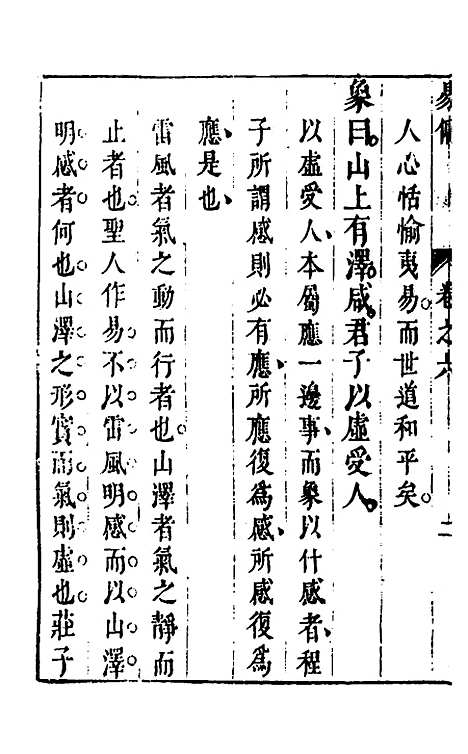 易 卷之六 二
人心恬愉夷易而世道和平矣
象曰山上有澤咸君子以虛受人
以虛受人本屬應一邊事而象以什感者程
子所謂感則必有應所應復爲感所感復爲
應是也
雷風者氣之動而行者也山澤者氣之靜而
止者也聖人作易不以雷風明感而以山澤
明感者何也山澤之形實而氣則虛也莊子